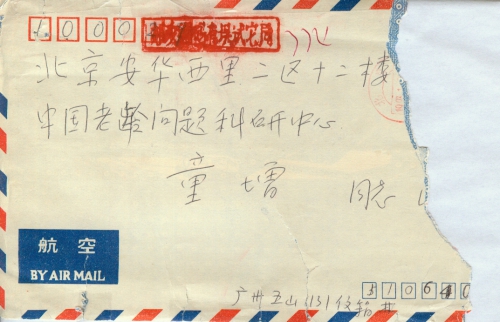 10001
北京安华西里二区十二楼
中国老龄问题科研中心
童增 同志
航空
BY AIR MAIL
广州五山
510640